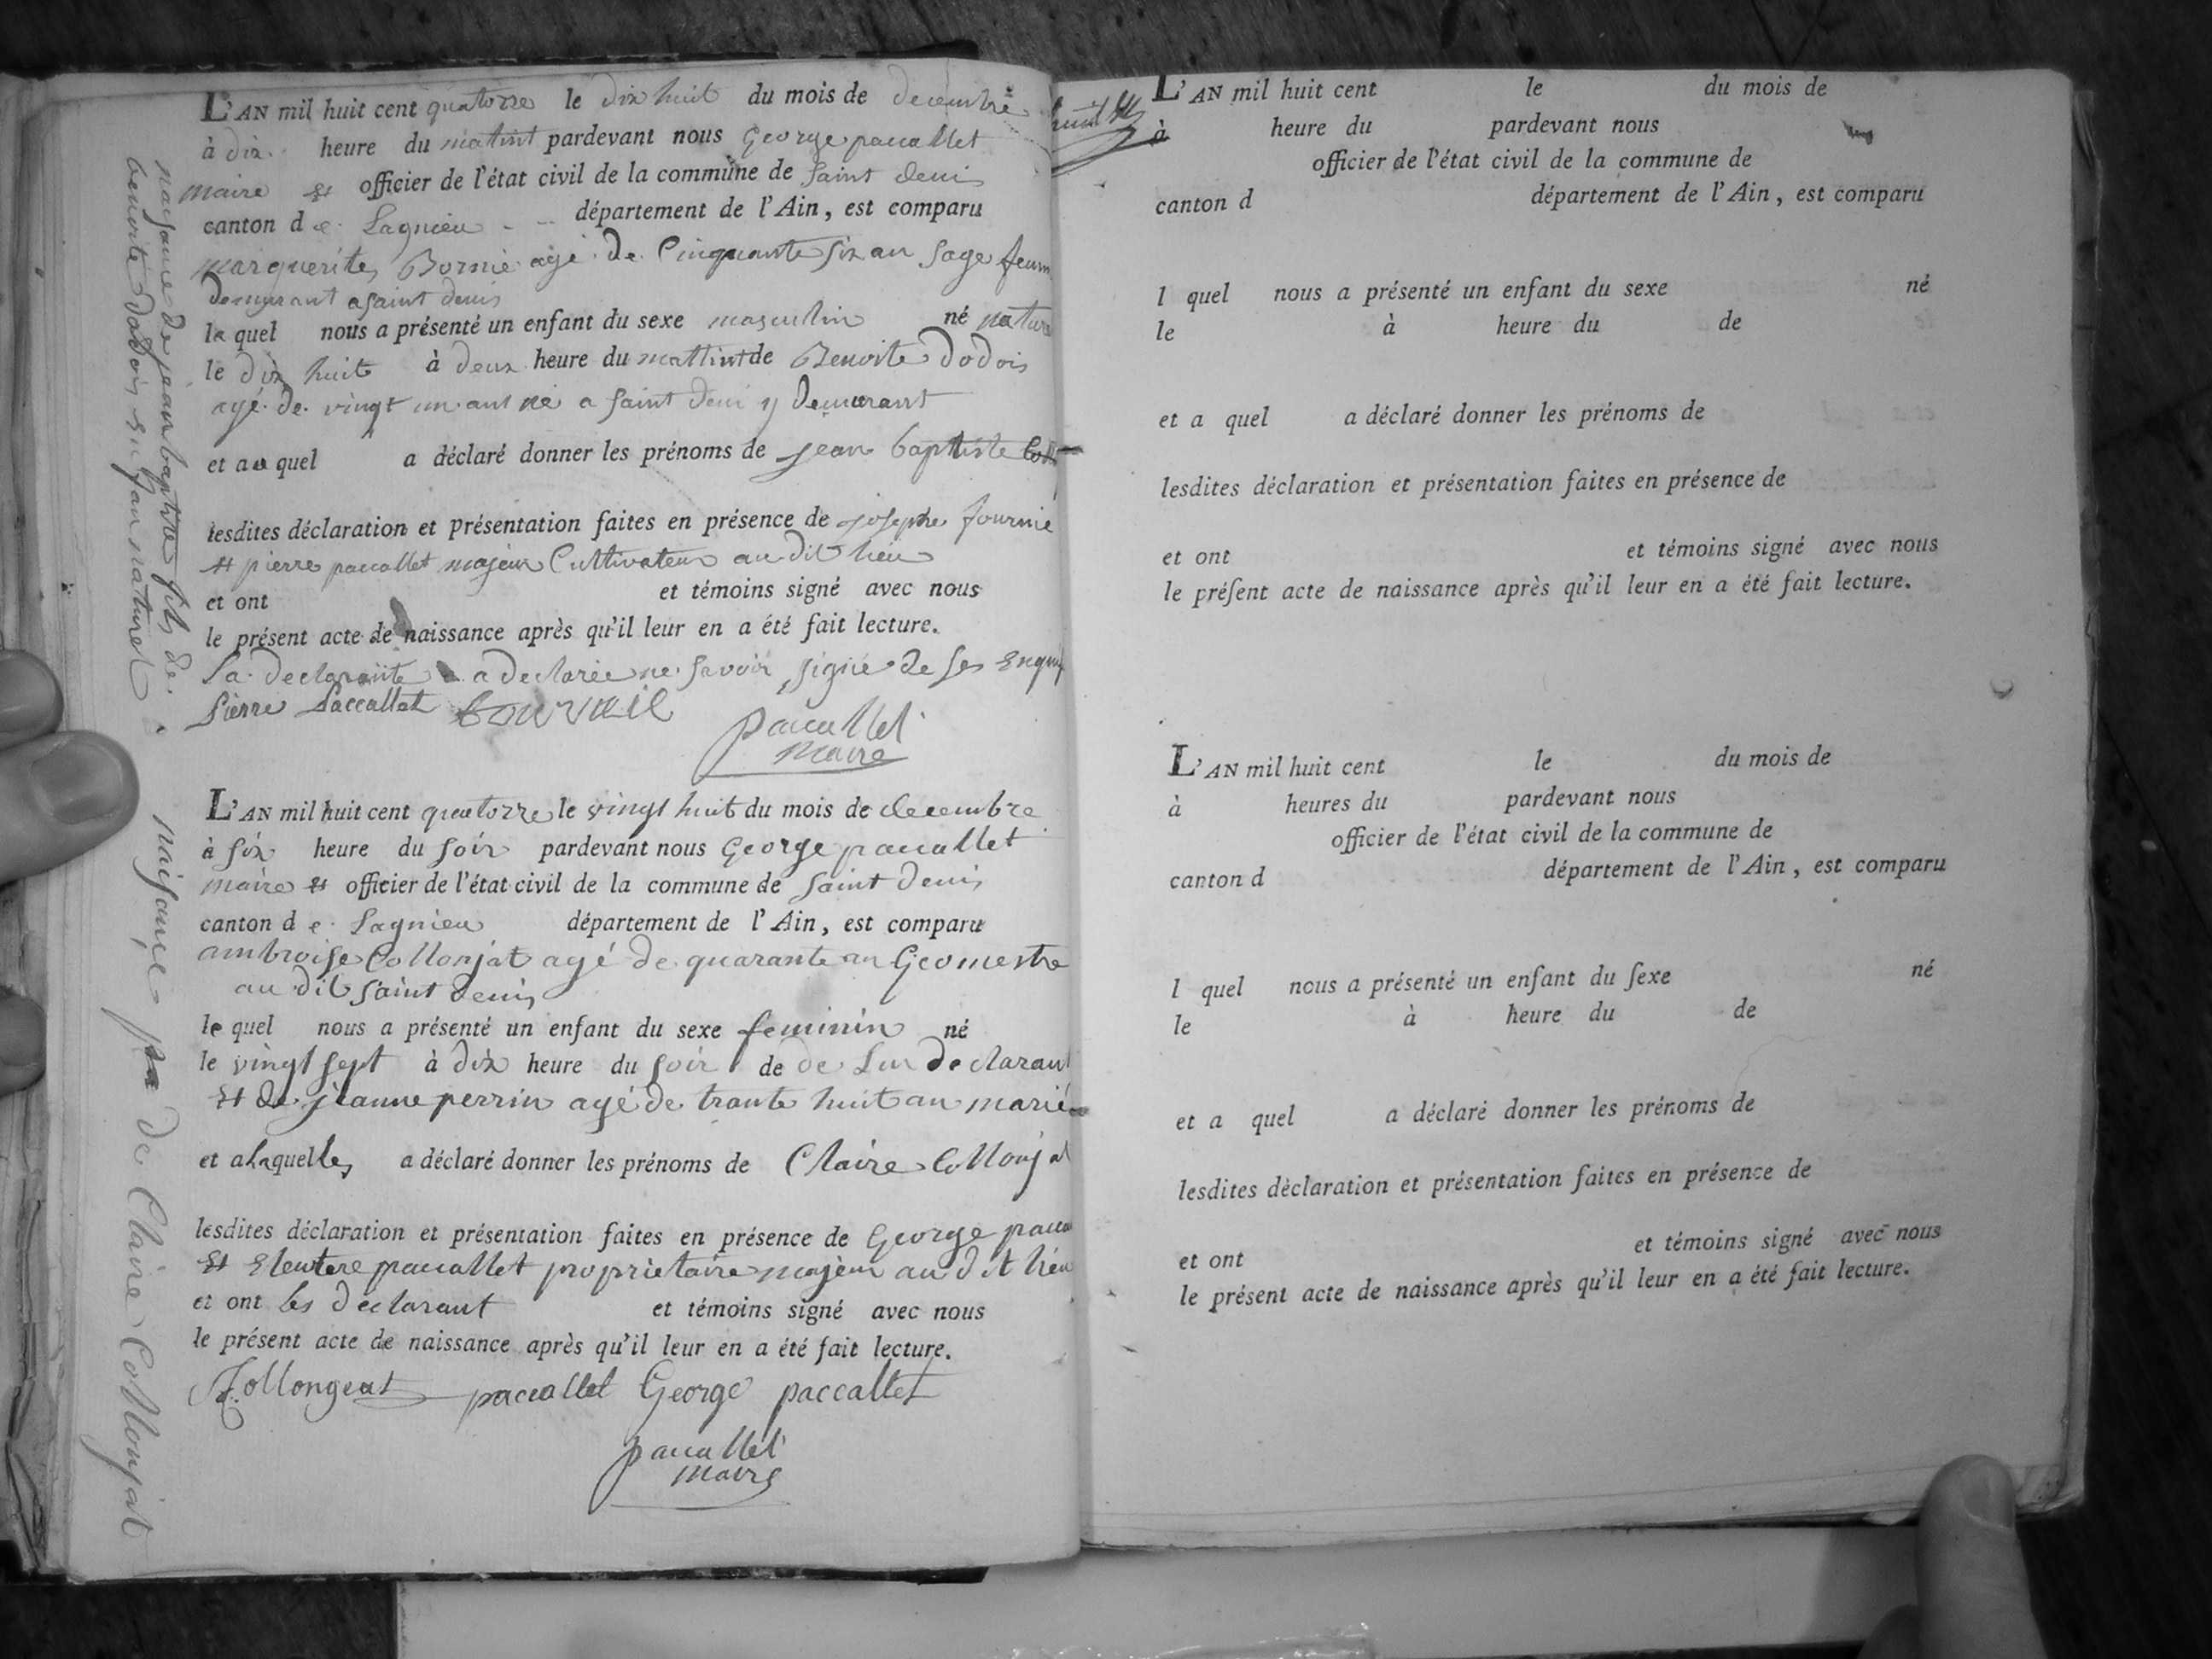 L'AN mil huit cent quatorze le dix huit du mois de decembre
à dix heure du matint pardevant nous George paccallet
maire et officier de l'état civil de la commune de saint denis
canton de Lagnieu département de l'Ain, est comparu
marguerite Bornie agé de Cinquante six an sage femm
demurant a saint denis
la quel nous a présenté un enfant du sexe masculin né natur
le dix huit à deux heure du mattint de Benoite Dodois
agé de vingt un ant né a saint deni y demurant
et a u quel a déclaré donner les prénoms de jean baptiste
lesdites déclaration et présentation faites en présence de josephe fournie
et pierre paccallet majeur Cultivateur au dit lieu
et ont et témoins signé avec nous
le présent acte de naissance après qu'il leur en a été fait lecture.
La declarante a declarée ne savoir signé de ses enqui
Pierre Paccallet
paccallet
maire
naisance de jean baptiste fils de
benoite dodois enfan naturel
L'AN mil huit cent quatorze le vingt huit du mois de decembre
à six heure du soir pardevant nous George paccallet
maire et officier de l'état civil de la commune de saint denis
canton de Lagnieu département de l'Ain, est comparu
ambroise Collonjat agé de quarante an Geomestre
au dit saint denis
le quel nous a présenté un enfant du sexe feminin né
le vingt sept à dix heure du soir de de Lui declarant
et de jeanne perrin agé de trante huit an marié
et a laquelle a déclaré donner les prénoms de Claire Collonjat
lesdites déclaration et présentation faites en présence de George pacca
et Eleutere paccallet proprietaire majeur au dit lieu
et ont les declarant et témoins signé avec nous
le présent acte de naissance après qu'il leur en a été fait lecture.
Collongeat paccallet George paccallet
paccallet
maire
naisançe de Claire Collonjat
L'AN mil huit cent le du mois de
à heure du pardevant nous
officier de l'état civil de la commune de
canton d département de l'Ain, est comparu
l quel nous a présenté un enfant du sexe né
le à heure du de
et a quel a déclaré donner les prénoms de
lesdites déclaration et présentation faites en présence de
et ont et témoins signé avec nous
le préſent acte de naissance après qu'il leur en a été fait lecture.
L'AN mil huit cent le du mois de
à heures du pardevant nous
officier de l'état civil de la commune de
canton d département de l'Ain, est comparu
l quel nous a présenté un enfant du ſexe né
le à heure du de
et a quel a déclaré donner les prénoms de
lesdites déclaration et présentation faites en présence de
et ont et témoins signé avec nous
le présent acte de naissance après qu'il leur en a été fait lecture.